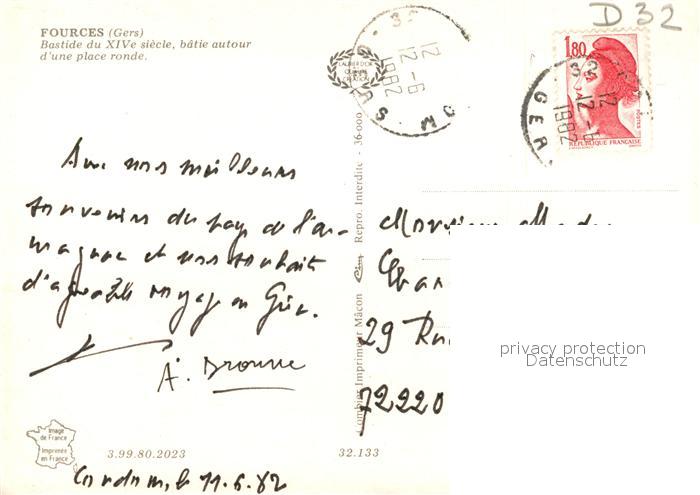 D 32
FOURCES (Gers)
Bastide du XIVe siècle, bâtie autour
d'une place ronde.
1,80
REPUBLIQUE FRANÇAISE
12
12 -6
1982
GER
12
12 -6
1982
Avec nos meilleurs
souvenirs du pays de l'ar-
magnac et nos souhaits
d'agréable voyage en Grèce.
Combier Imprimeur Mâcon
Repro. Interdite - 36-000
Monsieur
29 Rue
72220
privacy protection
Datenschutz
Image
de France
Imprimée
en France
3.99.80.2023
32.133
Condom, le 11.6.82